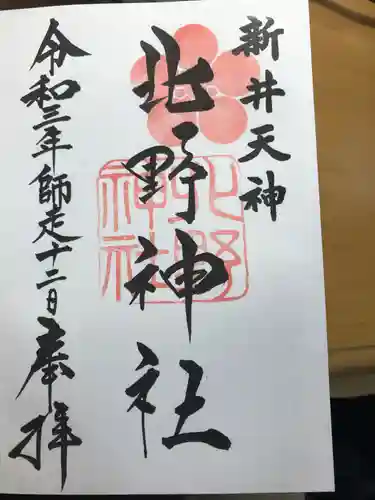 新井天神
北野神社
令和三年師走十二日奉拝
北野
神社